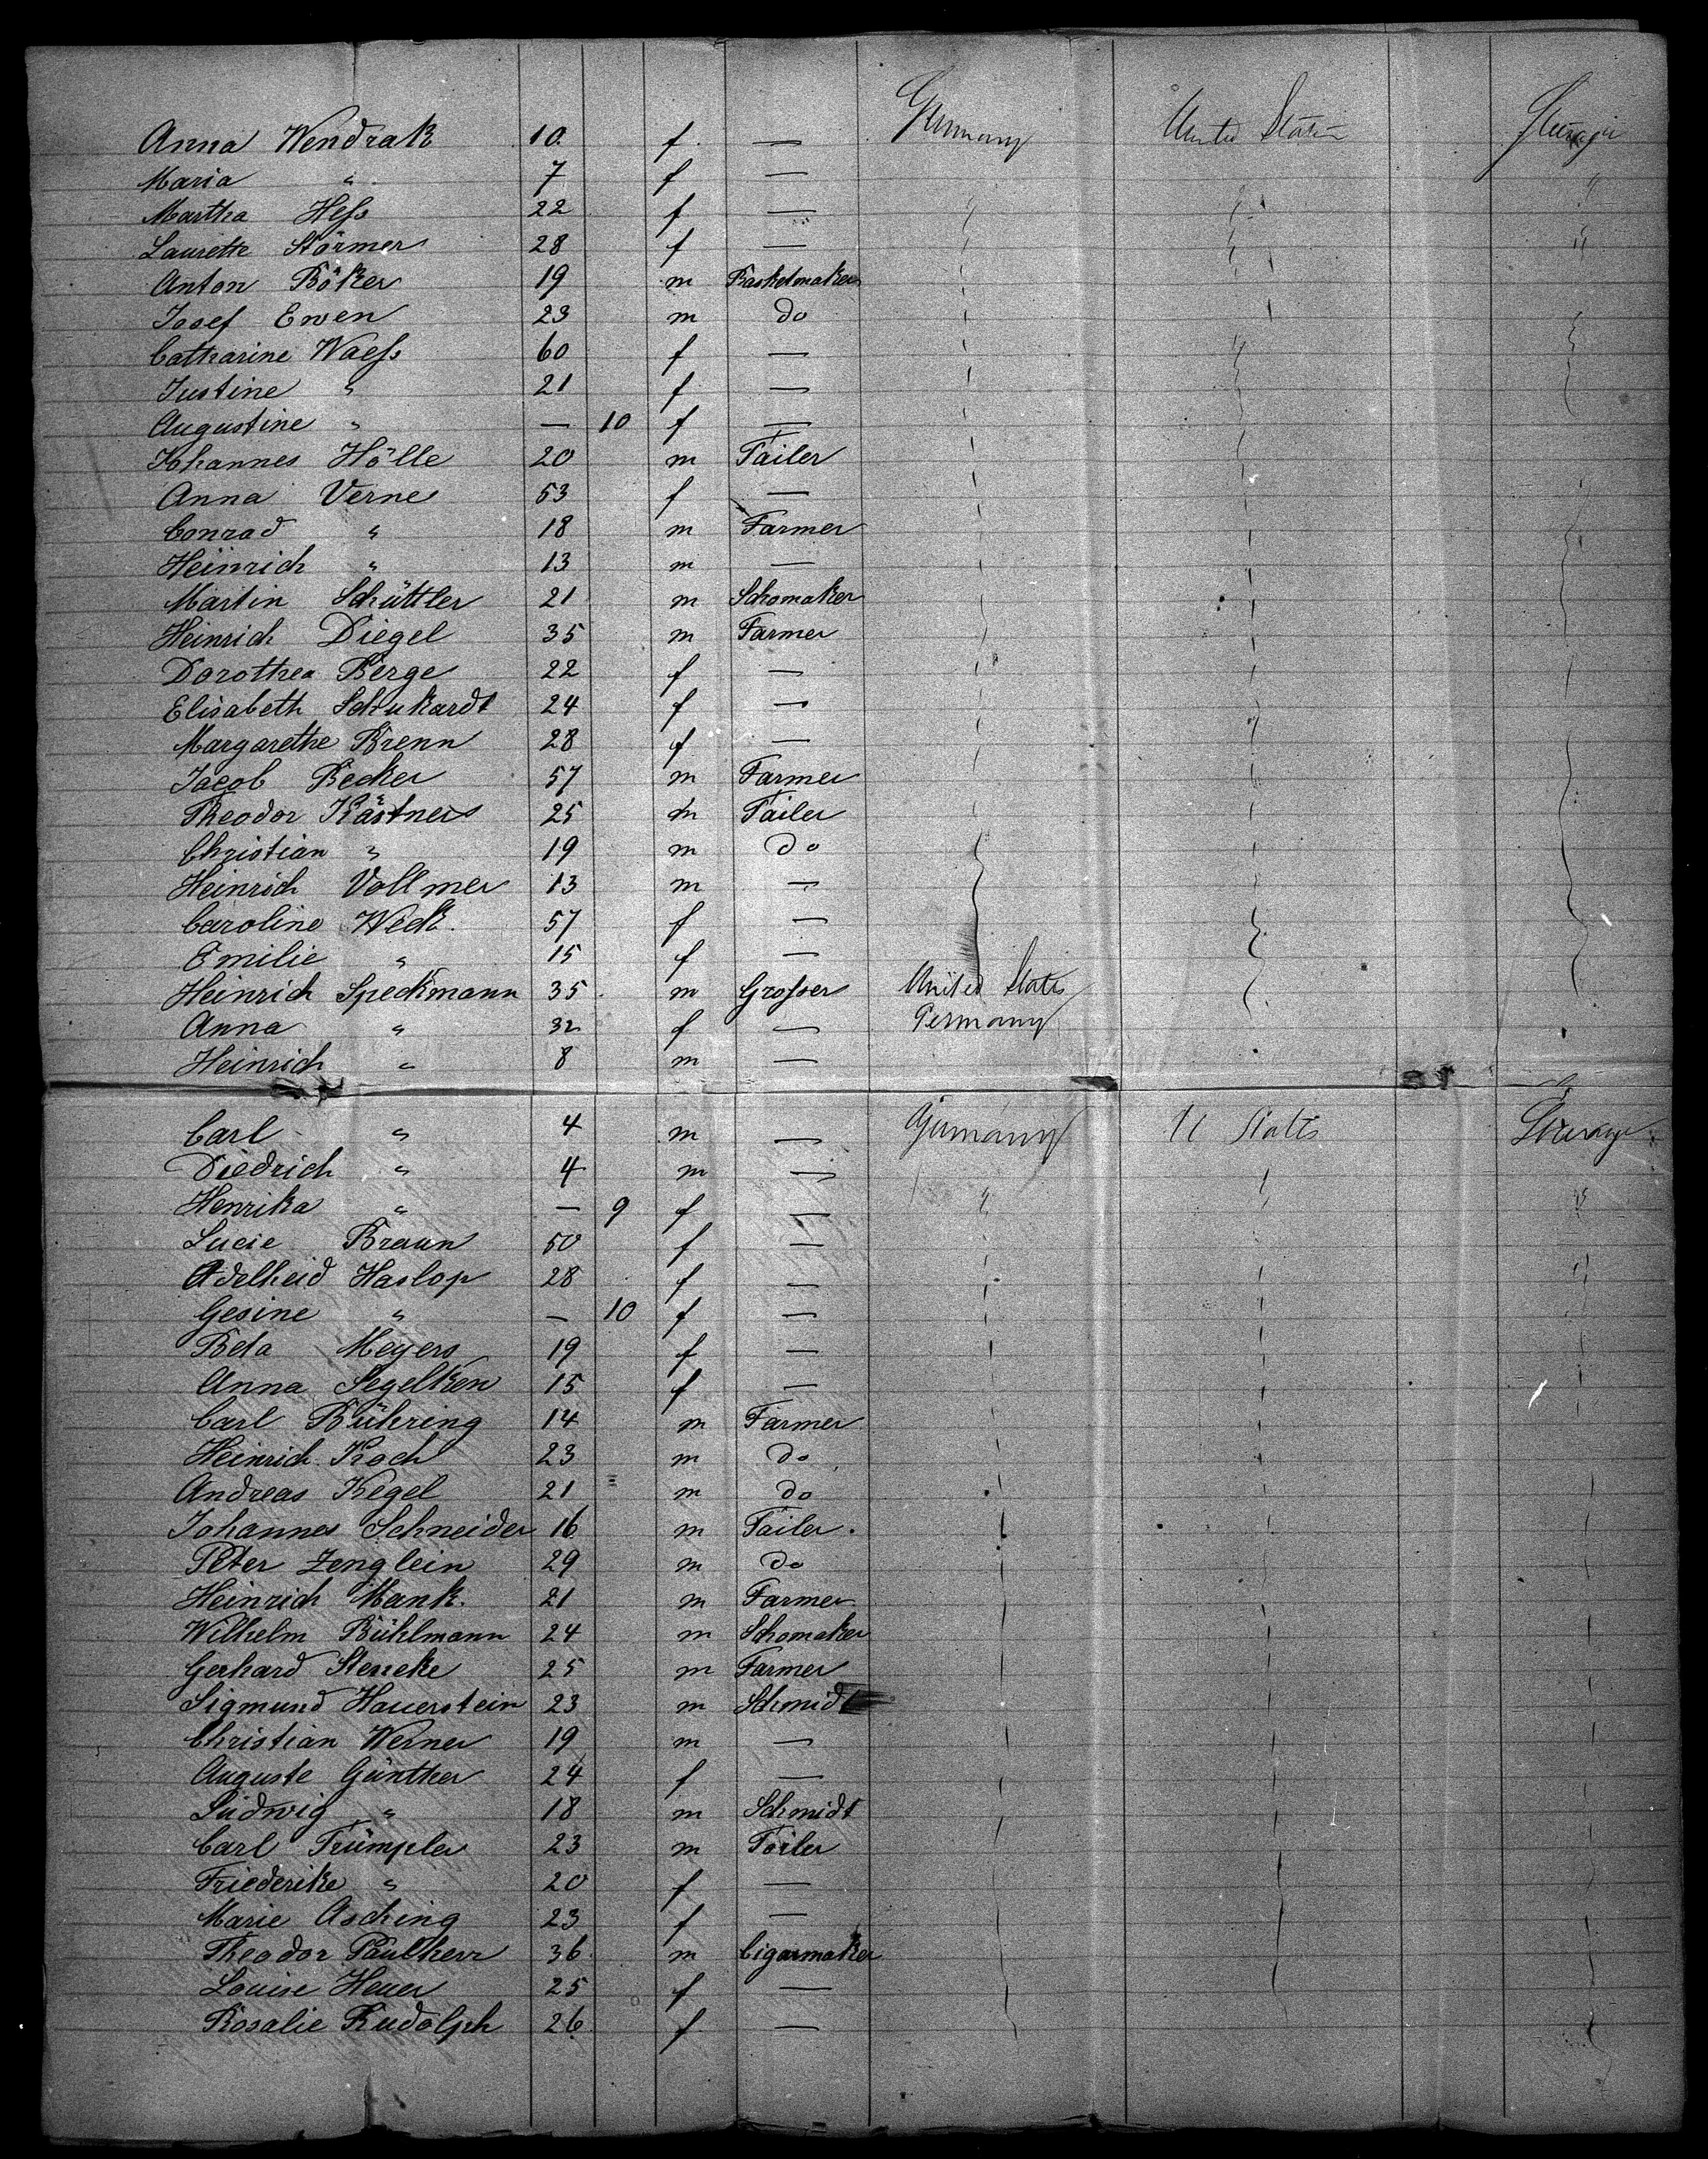 Anna Wendrak 10. f. — Germany United States Steerage
Maria " 7 f — "
Martha Heſs 22 f — " " "
Laurette Störmer 28 f — " " "
Anton Böker 19 m Basketmaker
Josef Ewen 23 m do
Catharine Waeſs 60 f —
Justine " 21 f —
Augustine " — 10 f —
Johannes Hölle 20 m Tailer
Anna Verne 53 f —
Conrad " 18 m Farmer
Heinrich " 13 m —
Martin Schüttler 21 m Schomaker
Heinrich Diegel 35 m Farmer
Dorothea Berge 22 f —
Elisabeth Schukardt 24 f —
Margarethe Brenn 28 f —
Jacob Becker 57 m Farmer
Theodor Kästner 25 m Tailer
Christian " 19 m do
Heinrich Vollmer 13 m —
Caroline Weck. 57 f —
Emilie " 15 f —
Heinrich Speckmann 35. m Groſser United States
Anna " 32 f — Germany
Heinrich " 8 m —
Carl " 4 m — Germany U States Steerage
Diedrich " 4 m —
Henrika " — 9 f — " "
Lucie Braun 50 f —
Adelheid Haslop 28 f —
Gesine " — 10 f —
Beta Meyers 19 f —
Anna Segelken 15 f —
Carl Bühring 14 m Farmer
Heinrich Koch 23 m do
Andreas Kegel 21 m do
Johannes Schneider 16 m Tailer.
Peter Zenglein 29 m do
Heinrich Mank. 21 m Farmer
Wilhelm Bühlmann 24 m Schomaker
Gerhard Steneke 25 m Farmer
Sigmund Hauerstein 23 m Schmidt
Christian Werner 19 m —
Auguste Günther 24 f —
Ludwig " 18 m Schmidt
Carl Trümpler 23 m Tailer
Friederike " 20 f —
Marie Asching 23 f —
Theodor Paulherr 36. m Cigarmaker
Louise Heuer 25 f —
Rosalie Rudolph 26. f. —